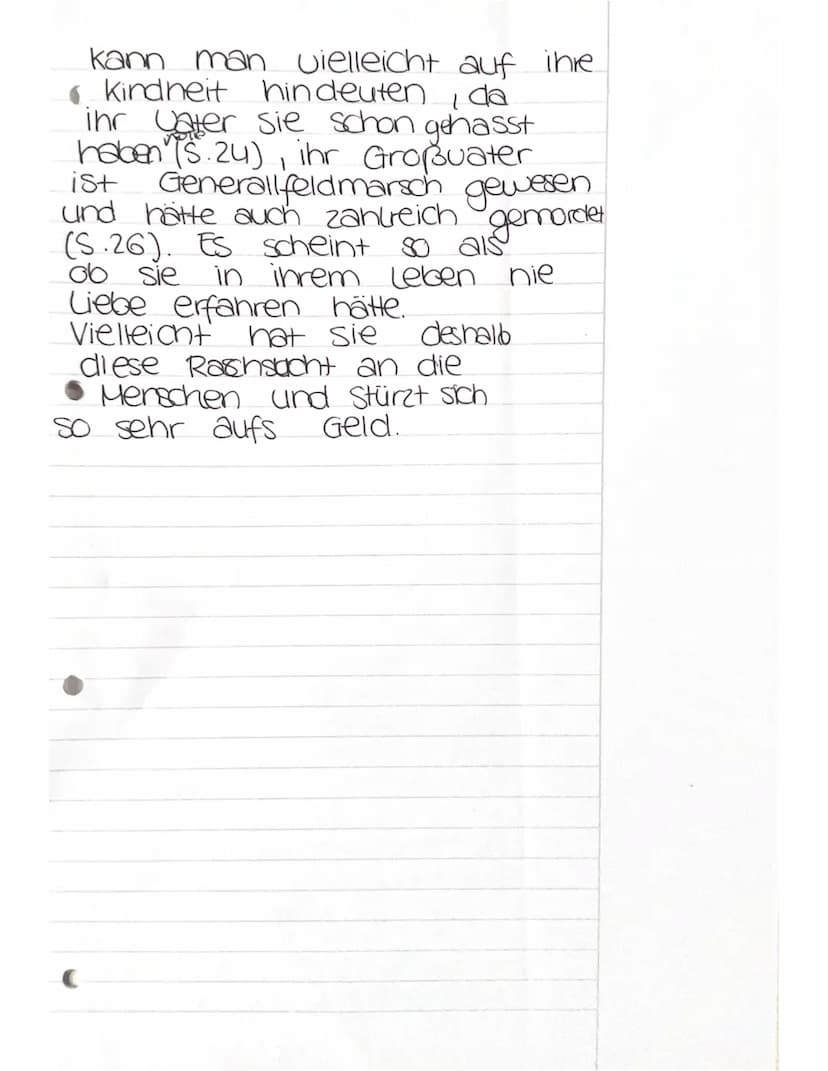 kann man vielleicht auf ihre
Kindheit hindeuten, da
ihr Vater sie schon gehasst
haben (S.24), ihr Großvater
ist Generallfeldmarsch gewesen
und hätte auch zahlreich gemordet
(S.26). Es scheint so als
ob sie in ihrem Leben nie
Liebe erfahren hätte.
Vielleicht hat sie deshalb
diese Rachsucht an die
Menschen und stürzt sich
so sehr aufs Geld.